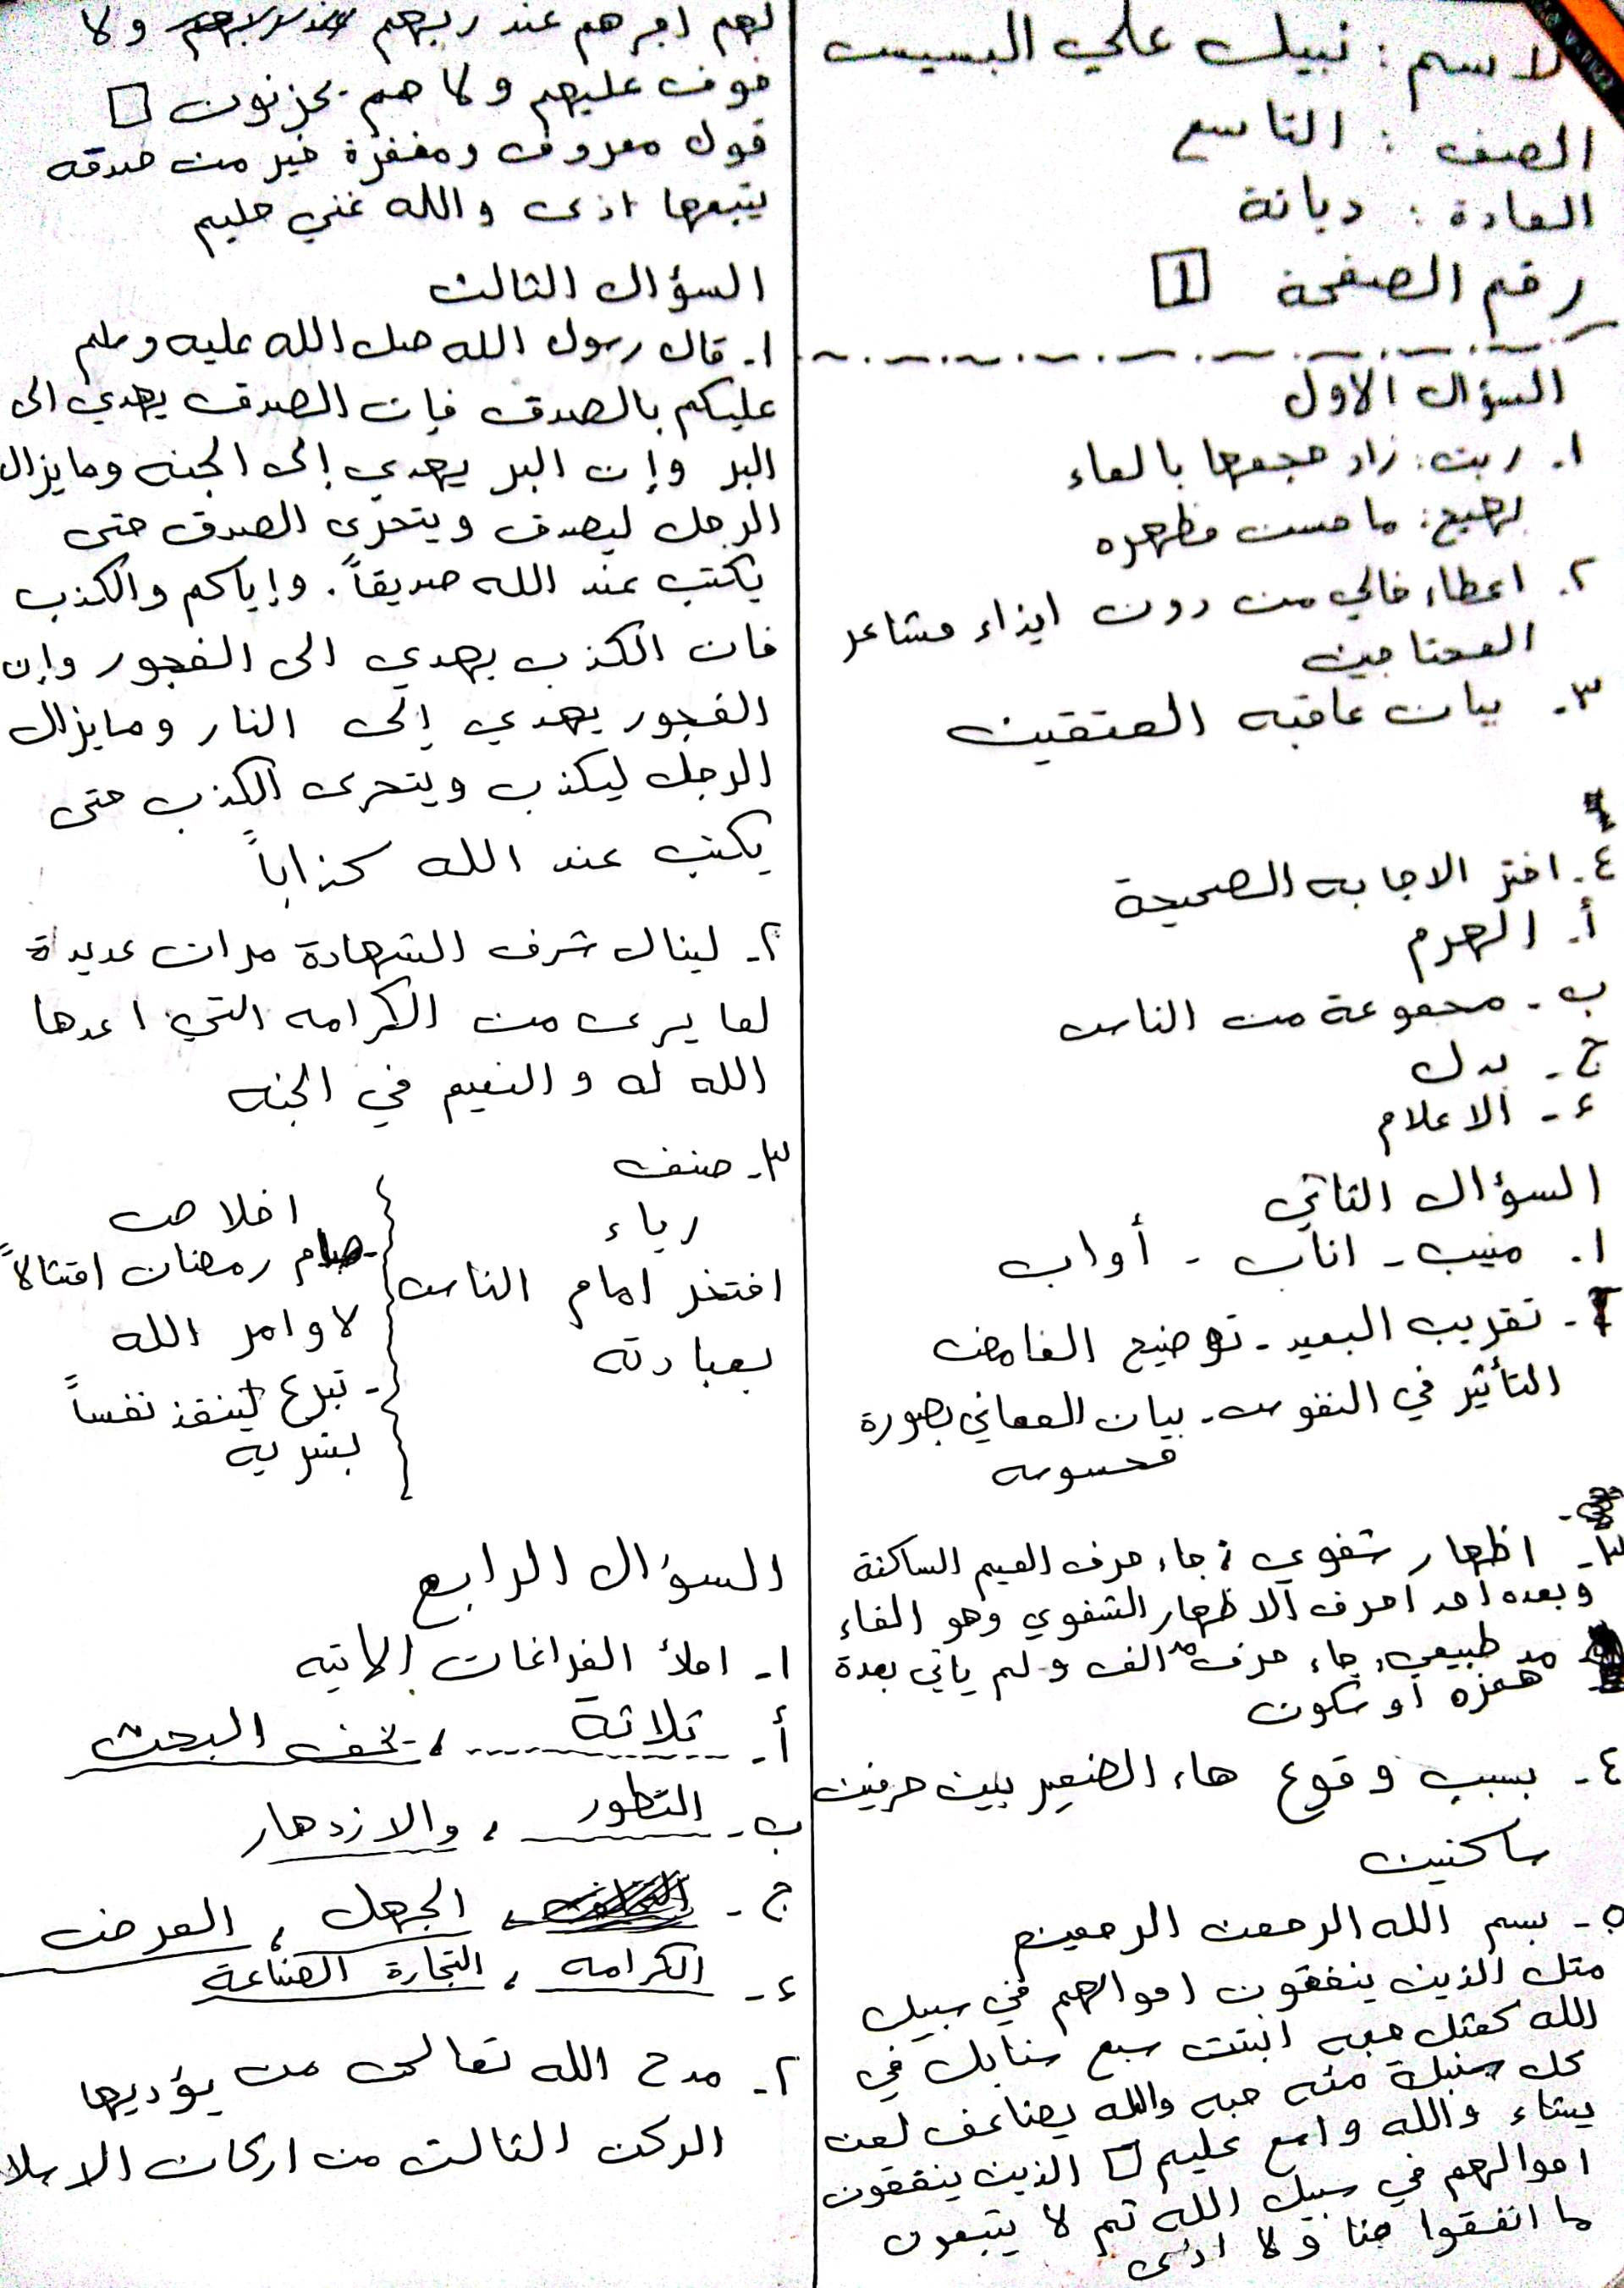 الاسم : نبيل علي البسيس
الصف : التاسع
المادة : ديانة
رقم الصفحة 1
السؤال الاول
١. ربت : زاد حجمها بالماء
بهيج : ما حسن مظهره
٢. اعطاء خالي من دون ايذاء مشاعر
المحتاجين
٣. بيان عاقبه المتقين
٤. اختر الاجابه الصحيحة
أ. الهرم
ب - مجموعة من الناس
ج - بدل
ء - الاعلام
السؤال الثاني
١. منيب - اناب - أواب
٢ - تقريب البعيد - توضيح الغامض
التأثير في النفوس - بيان المعاني بصورة
محسوسه
٣ - اظهار شفوي : جاء حرف الميم الساكنة
وبعده أحد احرف الاظهار الشفوي وهو الفاء
مد طبيعي : جاء حرف مد الف ولم ياتي بعدة
همزه أو سكون
٤ - بسبب وقوع هاء الضمير بين حرفين
ساكنين
٥ - بسم الله الرحمن الرحيم
مثل الذين ينفقون اموالهم في سبيل
الله كمثل حبه انبتت سبع سنابل في
كل سنبلة مئه حبه والله يضاعف لمن
يشاء والله واسع عليم □ الذين ينفقون
اموالهم في سبيل الله ثم لا يتبعون
ما انفقوا منا ولا اذى
لهم اجرهم عند ربهم ولا
خوف عليهم ولا هم يحزنون □
قول معروف ومغفرة خير من صدقه
يتبعها اذى والله غني حليم
السؤال الثالث
١- قال رسول الله صل الله عليه وسلم
عليكم بالصدق فإن الصدق يهدي الى
البر وإن البر يهدي إلى الجنه وما يزال
الرجل ليصدق ويتحرى الصدق حتى
يكتب عند الله صديقاً . وإياكم والكذب
فان الكذب يهدي الى الفجور وإن
الفجور يهدي إلى النار وما يزال
الرجل ليكذب ويتحرى الكذب حتى
يكتب عند الله كذاباً
٢- لينال شرف الشهادة مرات عديداة
لما يرى من الكرامه التي اعدها
الله له والنعيم في الجنه
٣- صنف
رياء
افتخر امام الناس
بعبادته
اخلاص
- صام رمضان امتثالاً
لاوامر الله
- تبرع لينقذ نفساً
بشريه
السؤال الرابع
١- املأ الفراغات الاتيه
أ- ثلاثة ، تخف البحث
ب- التطور ، والازدهار
ج - الجهل ، المرض
ء - الكرامه ، التجارة الصناعة
٢- مدح الله تعالى من يؤديها
الركن الثالث من اركان الاسلا